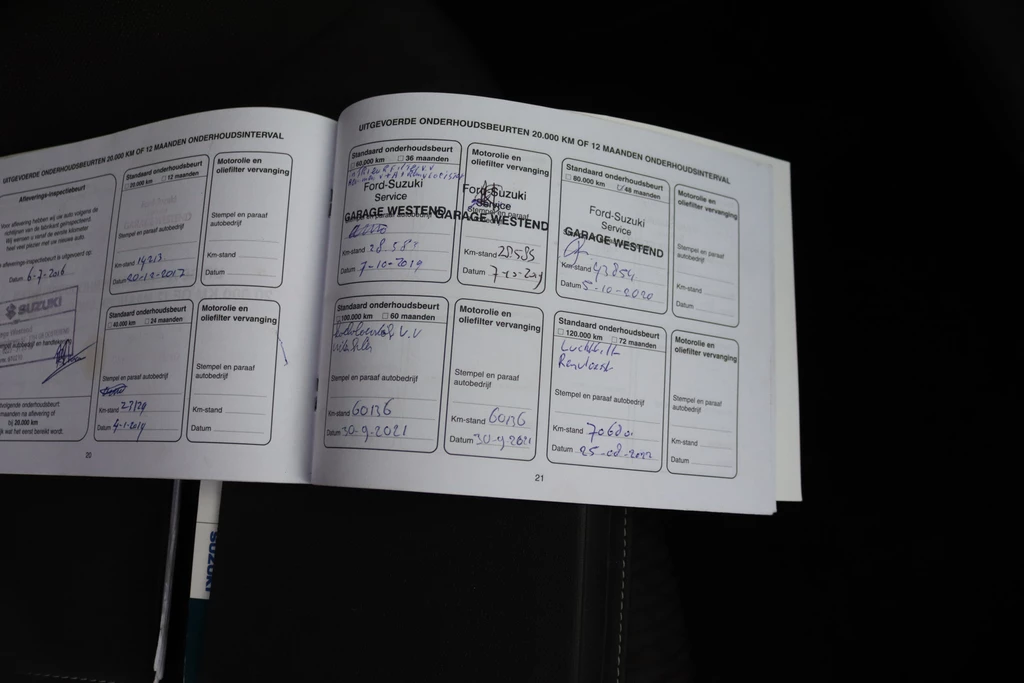 UITGEVOERDE ONDERHOUDSBEURTEN 20.000 KM OF 12 MAANDEN ONDERHOUDSINTERVAL
Afleverings-inspectiebeurt
Datum 6-7-2016
SUZUKI
Standaard onderhoudsbeurt
20.000 km 12 maanden
Stempel en paraaf
autobedrijf
Km-stand 14213
Datum 20-12-2017
Motorolie en
oliefilter vervanging
Stempel en paraaf
autobedrijf
Km-stand
Datum
bij 20.000 km
Standaard onderhoudsbeurt
40.000 km 24 maanden
Stempel en paraaf autobedrijf
Km-stand 27129
Datum 4-1-2019
Motorolie en
oliefilter vervanging
Stempel en paraaf
autobedrijf
Km-stand
Datum
20
UITGEVOERDE ONDERHOUDSBEURTEN 20.000 KM OF 12 MAANDEN ONDERHOUDSINTERVAL
Standaard onderhoudsbeurt
60.000 km 36 maanden
Ford-Suzuki
Service
GARAGE WESTEND
Km-stand 28.585
Datum 7-10-2019
Motorolie en
oliefilter vervanging
Ford-Suzuki
Service
Stempel en paraaf
GARAGE WESTEND
Km-stand 28585
Datum 7-10-2019
Standaard onderhoudsbeurt
80.000 km 48 maanden
Ford-Suzuki
Service
GARAGE WESTEND
Km-stand 43854
Datum 5-10-2020
Motorolie en
oliefilter vervanging
Stempel en paraaf
autobedrijf
Km-stand
Datum
Standaard onderhoudsbeurt
100.000 km 60 maanden
Stempel en paraaf autobedrijf
Km-stand 60136
Datum 30-9-2021
Motorolie en
oliefilter vervanging
Stempel en paraaf
autobedrijf
Km-stand 60136
Datum 30-9-2021
Standaard onderhoudsbeurt
120.000 km 72 maanden
Stempel en paraaf autobedrijf
Km-stand 70680
Datum 25-08-2022
Motorolie en
oliefilter vervanging
Stempel en paraaf
autobedrijf
Km-stand
Datum
21
SUZUKI